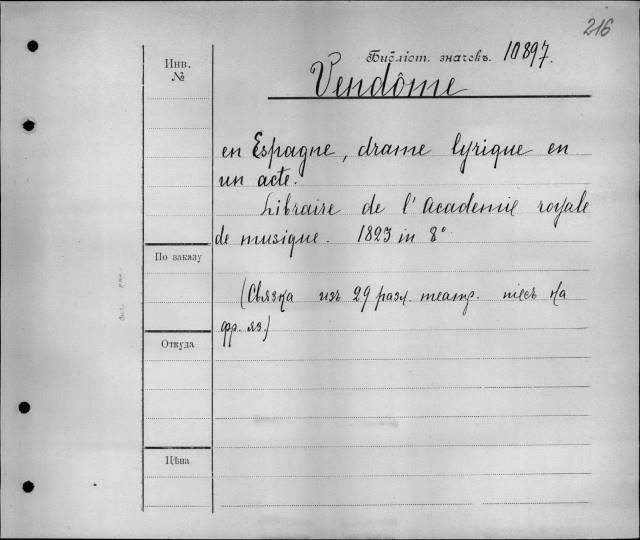 216
Инв.
№
Библіот. значекъ. 10897.
Vendôme
en Espagne, drame lyrique en
un acte.
Libraire de l'Academie royale
de musique. 1823 in 8°
По заказу
(Связка изъ 29 разл. театр. піесъ на
фр. яз.)
Откуда
Цѣна